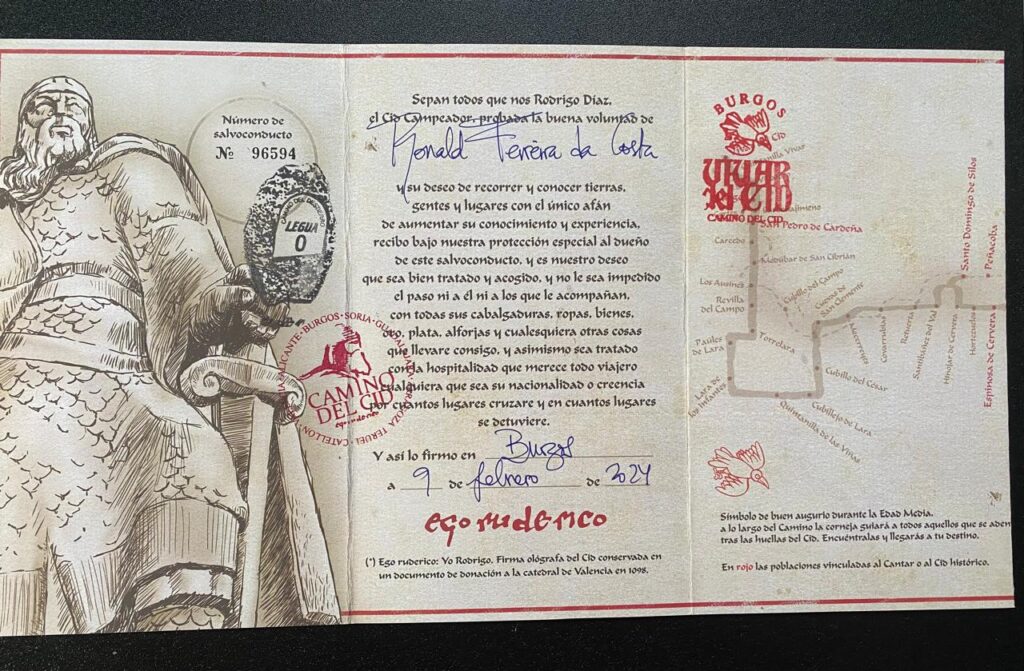 Número de
salvoconducto
Nº 96594
LEGUA
0
BURGOS · SORIA
CAMINO
DEL CID
Sepan todos que nos Rodrigo Díaz,
el Cid Campeador, probada la buena voluntad de
Ronald Ferreira da Costa
y su deseo de recorrer y conocer tierras,
gentes y lugares con el único afán
de aumentar su conocimiento y experiencia,
recibo bajo nuestra protección especial al dueño
de este salvoconducto, y es nuestro deseo
que sea bien tratado y acogido, y no le sea impedido
el paso ni a él ni a los que le acompañan,
con todas sus cabalgaduras, ropas, bienes,
oro, plata, alforjas y cualesquiera otras cosas
que llevare consigo, y asimismo sea tratado
con la hospitalidad que merece todo viajero
cualquiera que sea su nacionalidad o creencia
por cuantos lugares cruzare y en cuantos lugares
se detuviere.
Y así lo firmo en Burgos
a 9 de febrero de 2024
ego ruderico
(*) Ego ruderico: Yo Rodrigo. Firma ológrafa del Cid conservada en
un documento de donación a la catedral de Valencia en 1098.
BURGOS
Cid
VIVAR
del CID
CAMINO DEL CID
San Pedro de Cardeña
Carcedo
Modúbar de San Cibrián
Los Ausines
Revilla
del Campo
Cubillo del Campo
Cuevas de
San Clemente
Paúles
de Lara
Torrelara
Lara de
los Infantes
Cubillo del César
Cubillejo de Lara
Quintanilla de las Viñas
Covarrubias
Retuerta
Santibáñez del Val
Hinojar de Cervera
Santo Domingo de Silos
Peñacoba
Hortezuelos
Espinosa de Cervera
Símbolo de buen augurio durante la Edad Media,
a lo largo del Camino la corneja guiará a todos aquellos que se aden
tras las huellas del Cid. Encuéntralas y llegarás a tu destino.
En rojo las poblaciones vinculadas al Cantar o al Cid histórico.